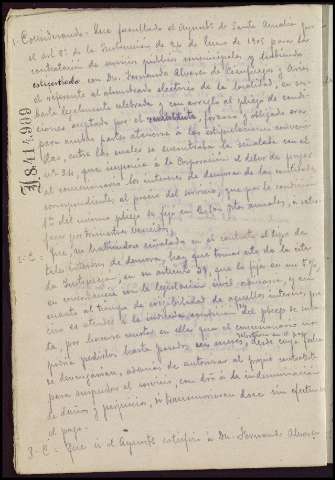 1. Considerando = Que facultado el Ayunto. de Santa Amalia por
el art. 8º. de la Instrucción de 24 de Enero de 1905 para la
contratación de servicios públicos municipales, y habiendo
estipulado con Dn. Fernando Alvarez de Cienfuegos y Arias
el referente al alumbrado electrico de la localidad, en su-
basta legalmente celebrada y con arreglo al pliego de condi-
ciones aceptado por el contratista, forzoso y obligado era
para ambas partes atenerse á las estipulaciones conveni-
das, entre las cuales se encontraba la señalada con el
nº. 34, que imponia á la Corporación el deber de pagar
al concesionario los intereses de demora de las cantidades
correspondientes al precio del servicio, que por la condición
del mismo pliego se fijó en pesetas anuales, á satis-
facer por trimestres vencidos.
2. C. = Que, no habiendose señalado en el contrato el tipo de
tales intereses de demora, hay que tomar este de la cita-
da Instrucción, en su artículo 34, que lo fija en un 5 %,
en consonancia con la legislación civil ordinaria, y en
cuanto al tiempo de exigibilidad de aquellos intereses, pre-
ciso es atender á la condición del pliego de subas-
ta, por hacerse constar en ella que el concesionario no
podrá pedirlos hasta pasados seis meses, desde cuya fecha
se devengarían, además de autorizar al propio contratista
para suspender el servicio, con dro. á la indemnización
de daños y perjuicios, si transcurriesen doce sin efectuarse
el pago.
3. C. = Que si el Ayunto. satisfizo á Dn. Fernando Alvarez
A8414989